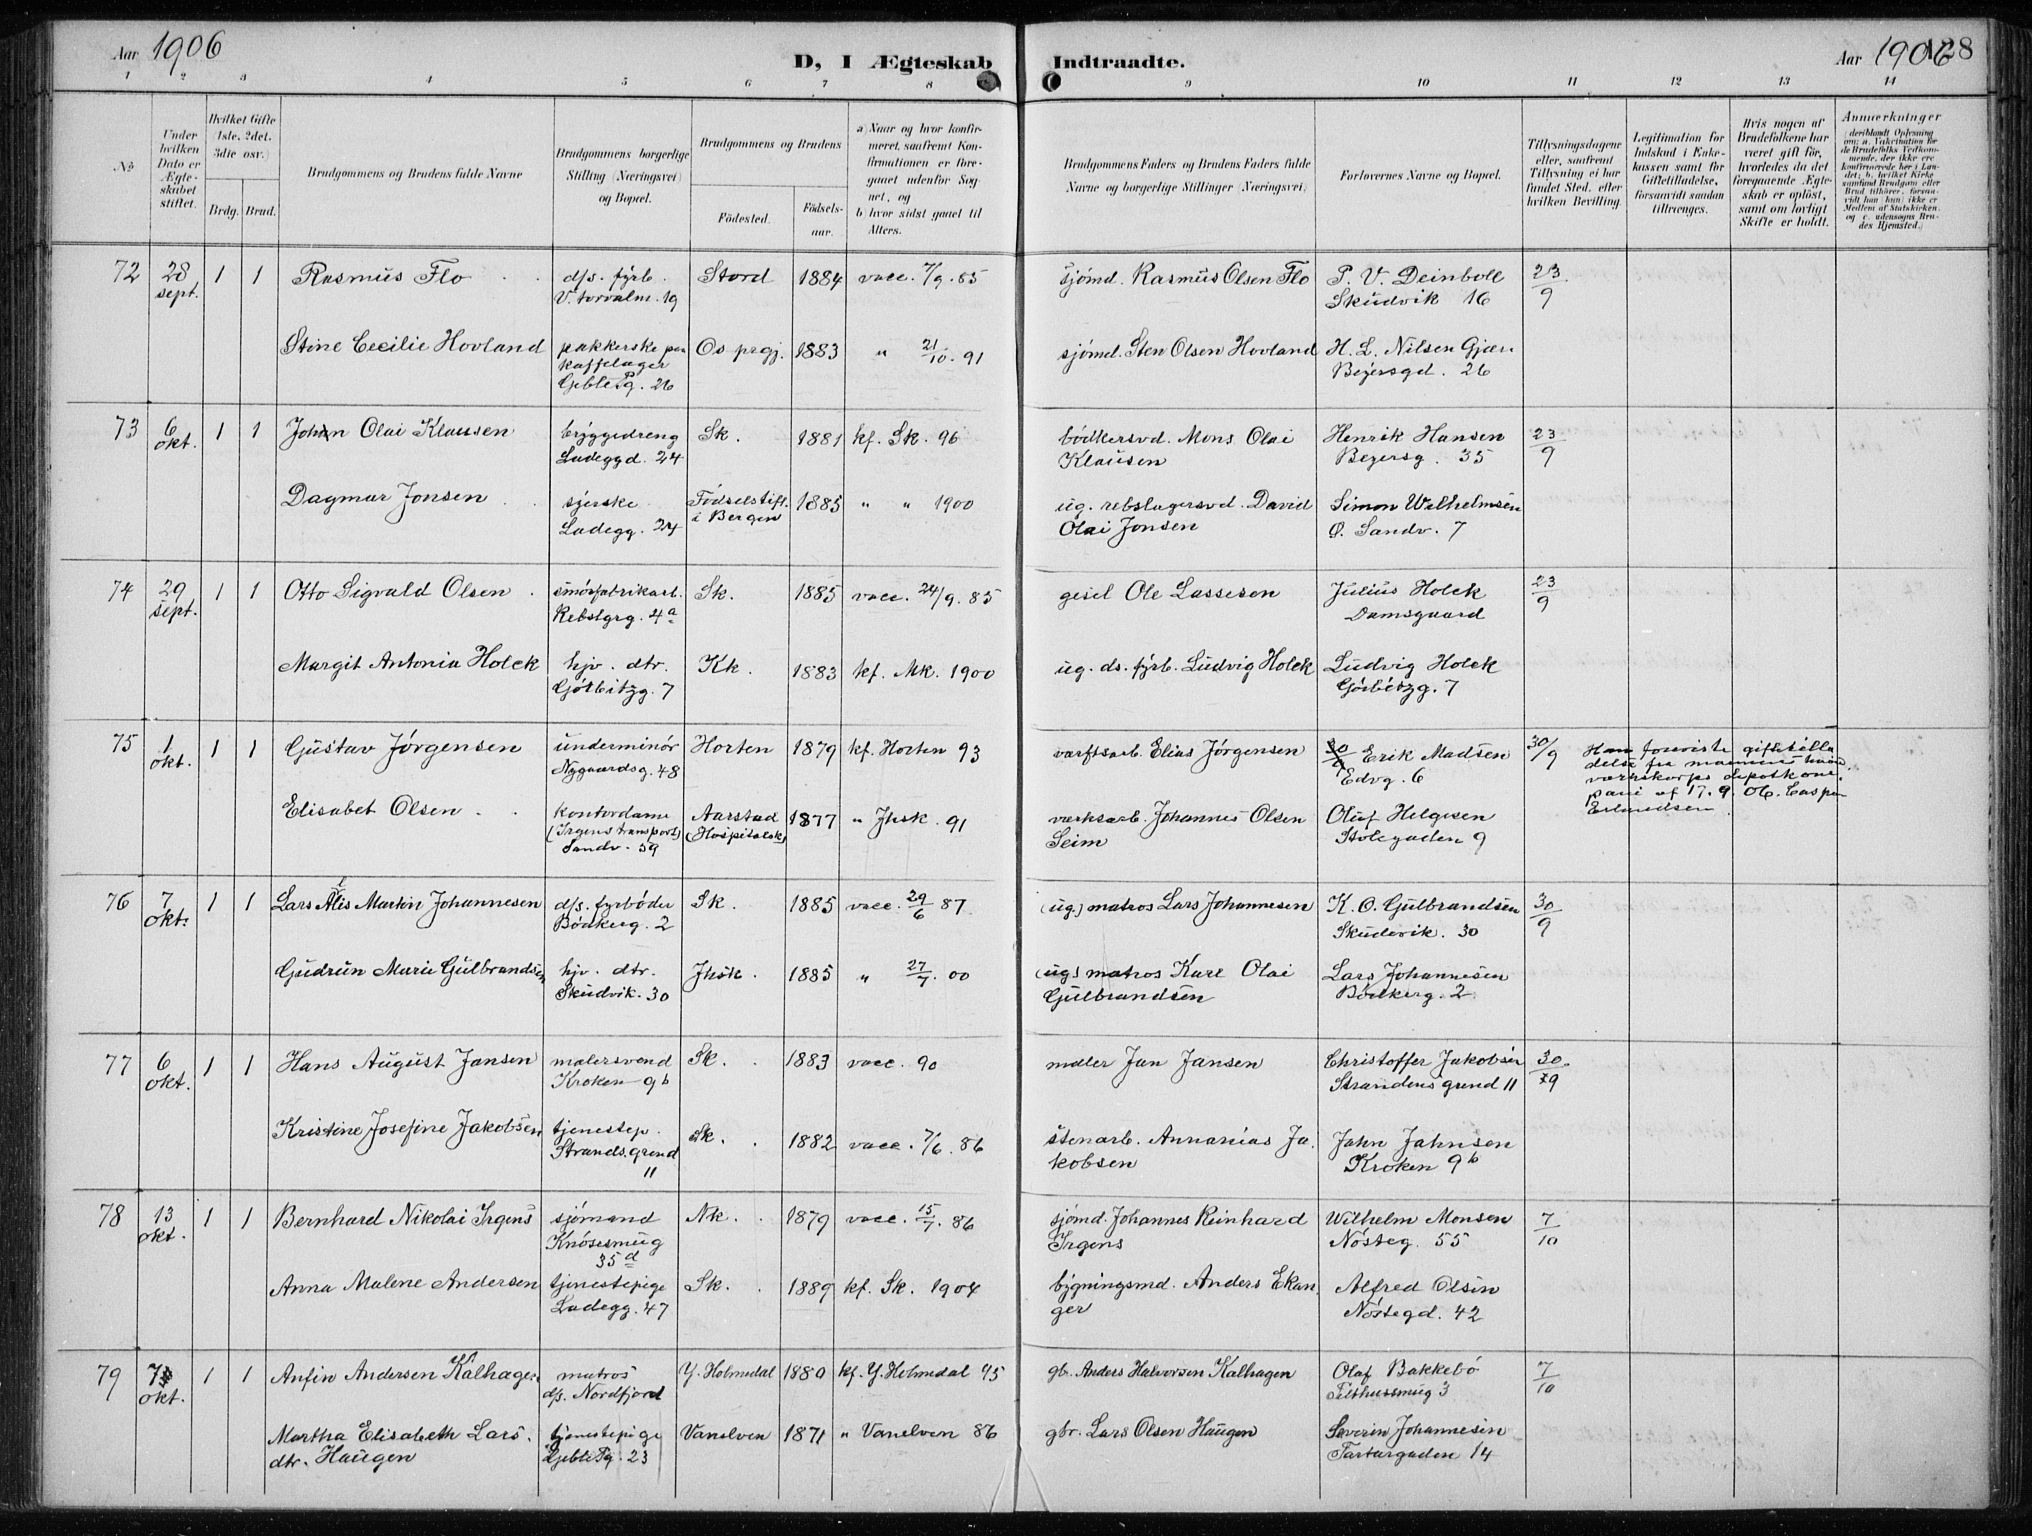 Aar 1906
D, I Ægteskab Indtraadte.
Aar 1906 128
1 2 3 4 5 6 7 8 9 10 11 12 13 14
№
Under hvilken Dato er Ægteskabet stiftet.
Hvilket Gifte (1ste, 2det, 3die osv.)
Brdg. Brud.
Brudgommens og Brudens fulde Navne
Brudgommens borgerlige Stilling (Næringsvei) og Bopæl.
Brudgommens og Brudens
Födested. Födselsaar.
a) Naar og hvor konfirmeret, saafremt Konfirmationen er foregaaet udenfor Sognet, og
b) hvor sidst gaaet til Alters.
Brudgommens Faders og Brudens Faders fulde Navne og borgerlige Stillinger (Næringsvei)
Forlovernes Navne og Bopæl.
Tillysningsdagene eller, saafremt Tillysning ei har fundet Sted, efter hvilken Bevilling.
Legitimation for Indskud i Enkekassen samt for Giftetilladelse, forsaavidt saadan tiltrænges.
Hvis nogen af Brudefolkene har været gift för, hvorledes da det foregaaende Ægteskab er oplöst, samt om lovligt Skifte er holdt.
Anmerkninger
72 28 sept. 1 1 Rasmus Flo d/s. fyrb. V. torvalm. 19 Stord 1884 vacc. 7/9. 85 sjömd. Rasmus Olsen Flo P. V. Deinboll Skudvik 16 23/9
Stine Cecilie Hovland pakkerske paa kaffelager Geble Pg. 26 Os prgj. 1883 " 21/10. 91 sjömd. Sten Olsen Hovland H. L. Nilsen Gjær Beyersgd. 26
73 6 okt. 1 1 Johan Olai Klausen bryggedreng Ladeggd. 24 Sk. 1881 kf. Sk. 96 bödkersvd. Mons Olai Klausen Henrik Hansen Beyersg. 35 23/9
Dagmar Jonsen syerske Ladegg. 24 Födselstift. i Bergen 1885 " " 1900 ug. rebslagersvd. David Olai Jonsen Simon Wilhelmsen Ö. Sandv. 7
74 29 sept. 1 1 Otto Sigvald Olsen smörfabrikarb. Rebslgrg. 4a Sk. 1885 vacc. 24/9. 85 gesel Ole Lassesen Julius Holck Damsgaard 23/9
Margit Antonia Holck hjv. dtr. Götbitzg. 7 Kk. 1883 kf. Mk. 1900 ug. ds. fyrb. Ludvig Holck Ludvig Holck Görbitzg. 7
75 1 okt. 1 1 Gustav Jörgensen underminör Nygaardsg. 48 Horten 1879 kf. Horten 93 varftsarb. Elias Jörgensen Erik Madsen Edvg. 6 30/9 Han foreviste giftetilladelse fra marinens mine væsenskorps depotkompani af 17. 9. 06. Casper Erlandsen
Elisabet Olsen kontordame (Irgens transport) Sandv. 59 Aarstad (Hospitalsk) 1877 " Jhsk. 91 værksarb. Johannes Olsen Seim Oluf Helgesen Stölegaden 9
76 7 okt. 1 1 Lars Alis Martin Johannesen d/s. fyrböder Bödkerg. 2 Sk. 1885 vacc. 29/6 87 (ug.) matros Lars Johannesen K. O. Gulbrandsen Skudevik. 30 30/9
Gudrun Marie Gulbrandsen hjv. dtr. Skudvik. 30 Jhsk. 1885 " 27/7. 00 (ug) matros Karl Olai Gulbrandsen Lars Johannesen Bödkerg. 2
77 6 okt. 1 1 Hans August Jansen malersvend Kroken 9b Sk. 1883 vacc. 90 maler Jan Jansen Christoffer Jakobsen Strandens grend 11 30/9
Kristine Josefine Jakobsen tjenestep. Strands. grend 11 Sk. 1882 vacc. 7/6. 86 stenarb. Annanias Jakobsen Jahn Jahnsen Kroken 9b
78 13 okt. 1 1 Bernhard Nikolai Irgens sjömand Knösesmug 35d Nk. 1879 vacc. 15/7. 86 sjömd. Johannes Reinhard Irgens Wilhelm Monsen Nösteg. 55 7/10
Anna Malene Andersen tjenestepige Ladegg. 47 Sk. 1889 kf. Sk. 1904 bygningsmd. Anders Ekanger Alfred Olsen Nöstegd. 42
79 7 okt. 1 1 Anfin Andersen Kalhagen matros d/s. Nordfjord Y. Holmedal 1880 kf. Y. Holmedal 95 gbr. Anders Halvorsen Kalhagen Olaf Bakkebö Tilthussmug 3 7/10
Martha Elisabeth Larsdtr. Haugen tjenestepige Geble Pg. 23 Vanelven 1871 " Vanelven 86 gbr. Lars Olsen Haugen Severin Johannesen Tartargaden 14